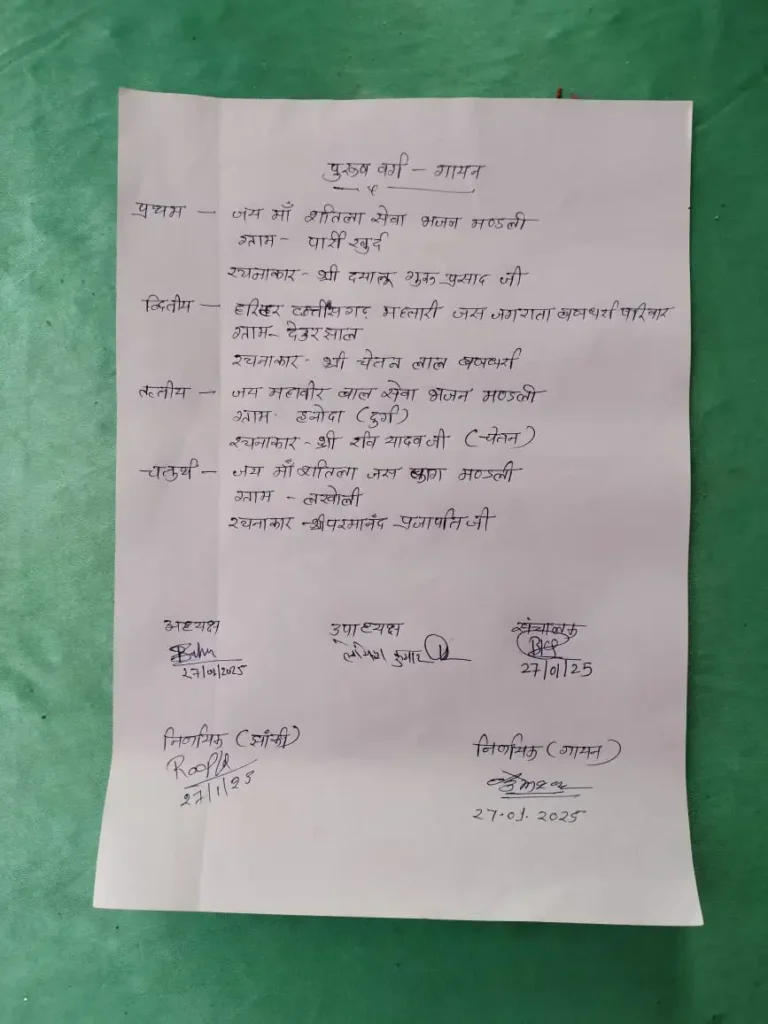 पुरूष वर्ग - गायन
प्रथम - जय माँ शतिला सेवा भजन मण्डली
ग्राम - पार्री खुर्द
रचनाकार - श्री दयालू गुरू प्रसाद जी
द्वितीय - हरिहर छत्तीसगढ़ महतारी जस जगराता परिवार
ग्राम - देउरझाल
रचनाकार - श्री चेतन लाल
तृतीय - जय महावीर बाल सेवा भजन मण्डली
ग्राम - हनोदा (दुर्ग)
रचनाकार - श्री रवि यादव जी (चेतन)
चतुर्थ - जय माँ शतिला जस फाग मण्डली
ग्राम - लखोली
रचनाकार - श्री परमानंद प्रजापति जी
अध्यक्ष उपाध्यक्ष संचालक
27/01/2025 कुमार 27/01/25
निर्णायक (झांकी) निर्णायक (गायन)
27/1/25 27.01.2025